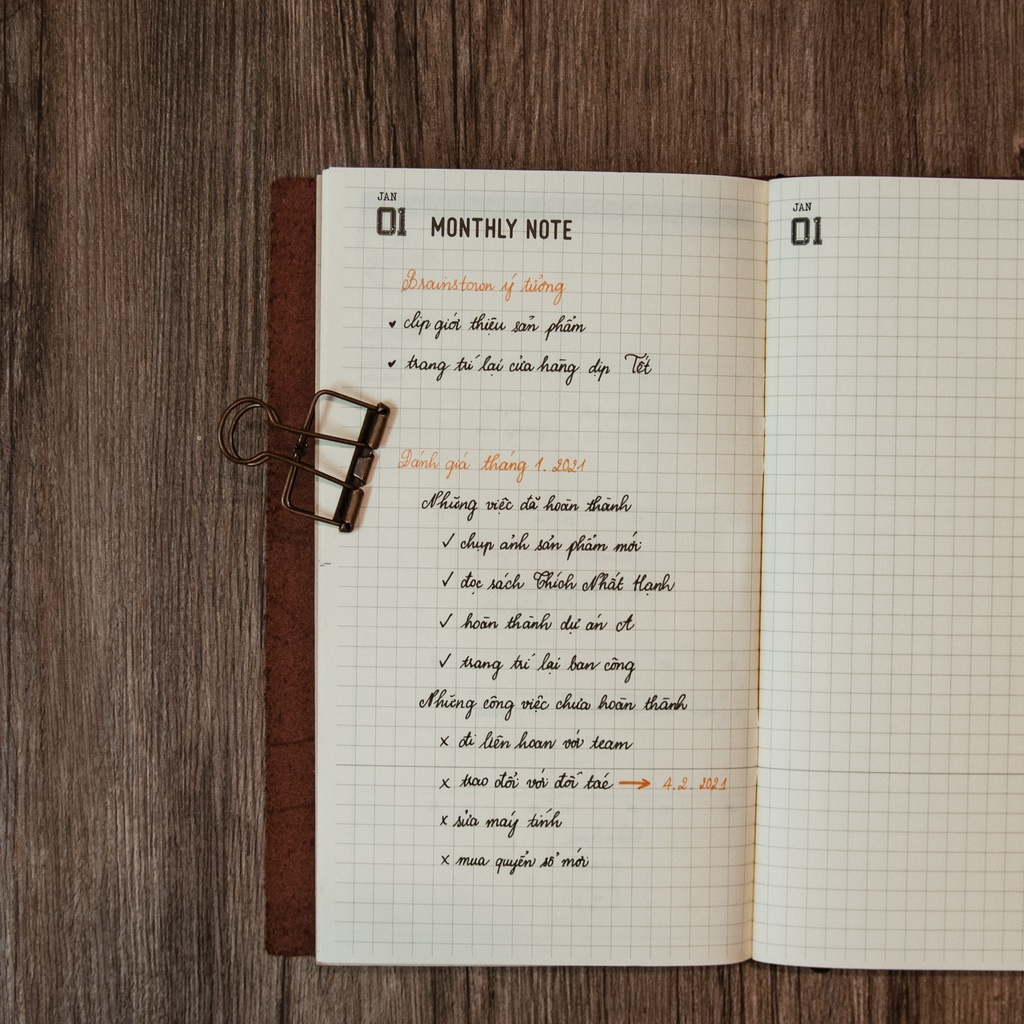 JAN
01 MONTHLY NOTE
Brainstorm ý tưởng
clip giới thiệu sản phẩm
trang trí lại cửa hàng dịp Tết
Đánh giá tháng 1. 2021
Những việc đã hoàn thành
✓ chụp ảnh sản phẩm mới
✓ đọc sách Thích Nhất Hạnh
✓ hoàn thành dự án A
✓ trang trí lại ban công
Những công việc chưa hoàn thành
x đi liên hoan với team
x trao đổi với đối tác → 4.2.2021
x sửa máy tính
x mua quyển sổ mới
JAN
01